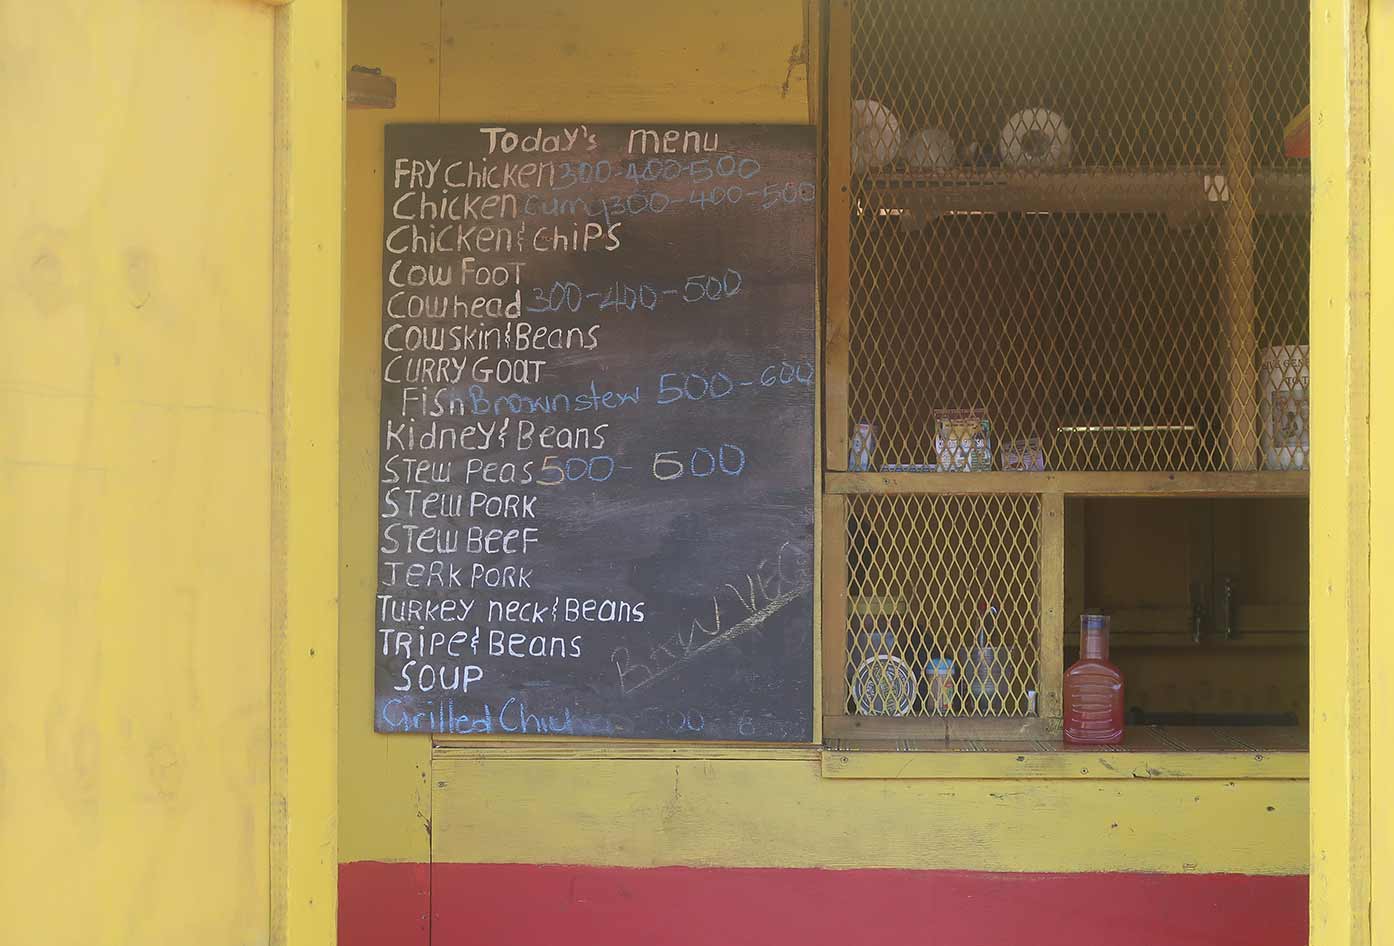 Today's menu
FRY Chicken 300-400-500
Chicken Curry 300-400-500
Chicken & chiPS
Cow FooT
Cowhead 300-400-500
Cowskin & Beans
CURRY GOAT
Fish Brownstew 500-600
Kidney & Beans
STEW Peas 500- 600
STEW PORK
STEW BEEF
JERK PORK
TURKEY neck & Beans
TRiPE & Beans
SOUP
Grilled